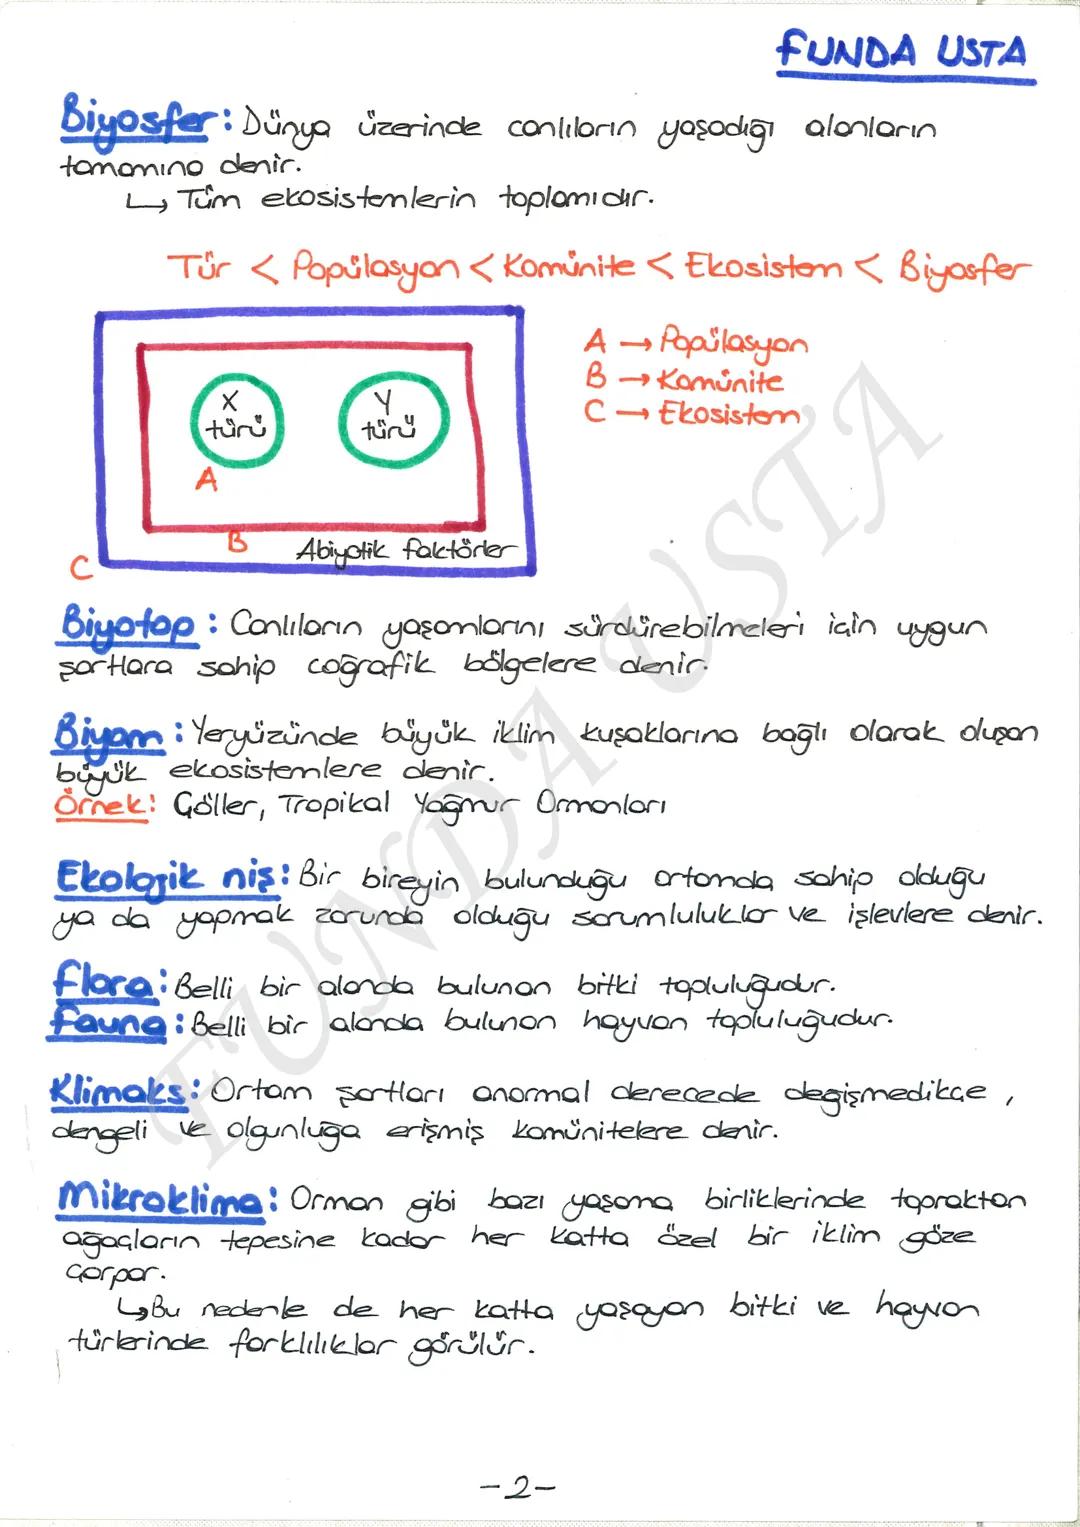 FUNDA USTA
Biyosfer: Dünya üzerinde canlıların yaşadığı alanların
tamamına denir.
↳ Tüm ekosistemlerin toplamıdır.
Tür < Popülasyon < Komünite < Ekosistem < Biyosfer
A → Popülasyon
B → Komünite
C → Ekosistem
X türü
Y türü
A
B
Abiyotik faktörler
C
Biyotop: Canlıların yaşamlarını sürdürebilmeleri için uygun
şartlara sahip coğrafik bölgelere denir.
Biyom: Yeryüzünde büyük iklim kuşaklarına bağlı olarak oluşan
büyük ekosistemlere denir.
Örnek: Göller, Tropikal Yağmur Ormanları
Ekolojik niş: Bir bireyin bulunduğu ortamda sahip olduğu
ya da yapmak zorunda olduğu sorumluluklar ve işlevlere denir.
Flora: Belli bir alanda bulunan bitki topluluğudur.
Fauna: Belli bir alanda bulunan hayvan topluluğudur.
Klimaks: Ortam şartları anormal derecede değişmedikçe,
dengeli ve olgunluğa erişmiş komünitelere denir.
Mikroklima: Orman gibi bazı yaşama birliklerinde topraktan
ağaçların tepesine kadar her katta özel bir iklim göze
çarpar.
↳ Bu nedenle de her katta yaşayan bitki ve hayvan
türlerinde farklılıklar görülür.
-2-
FUNDA USTA